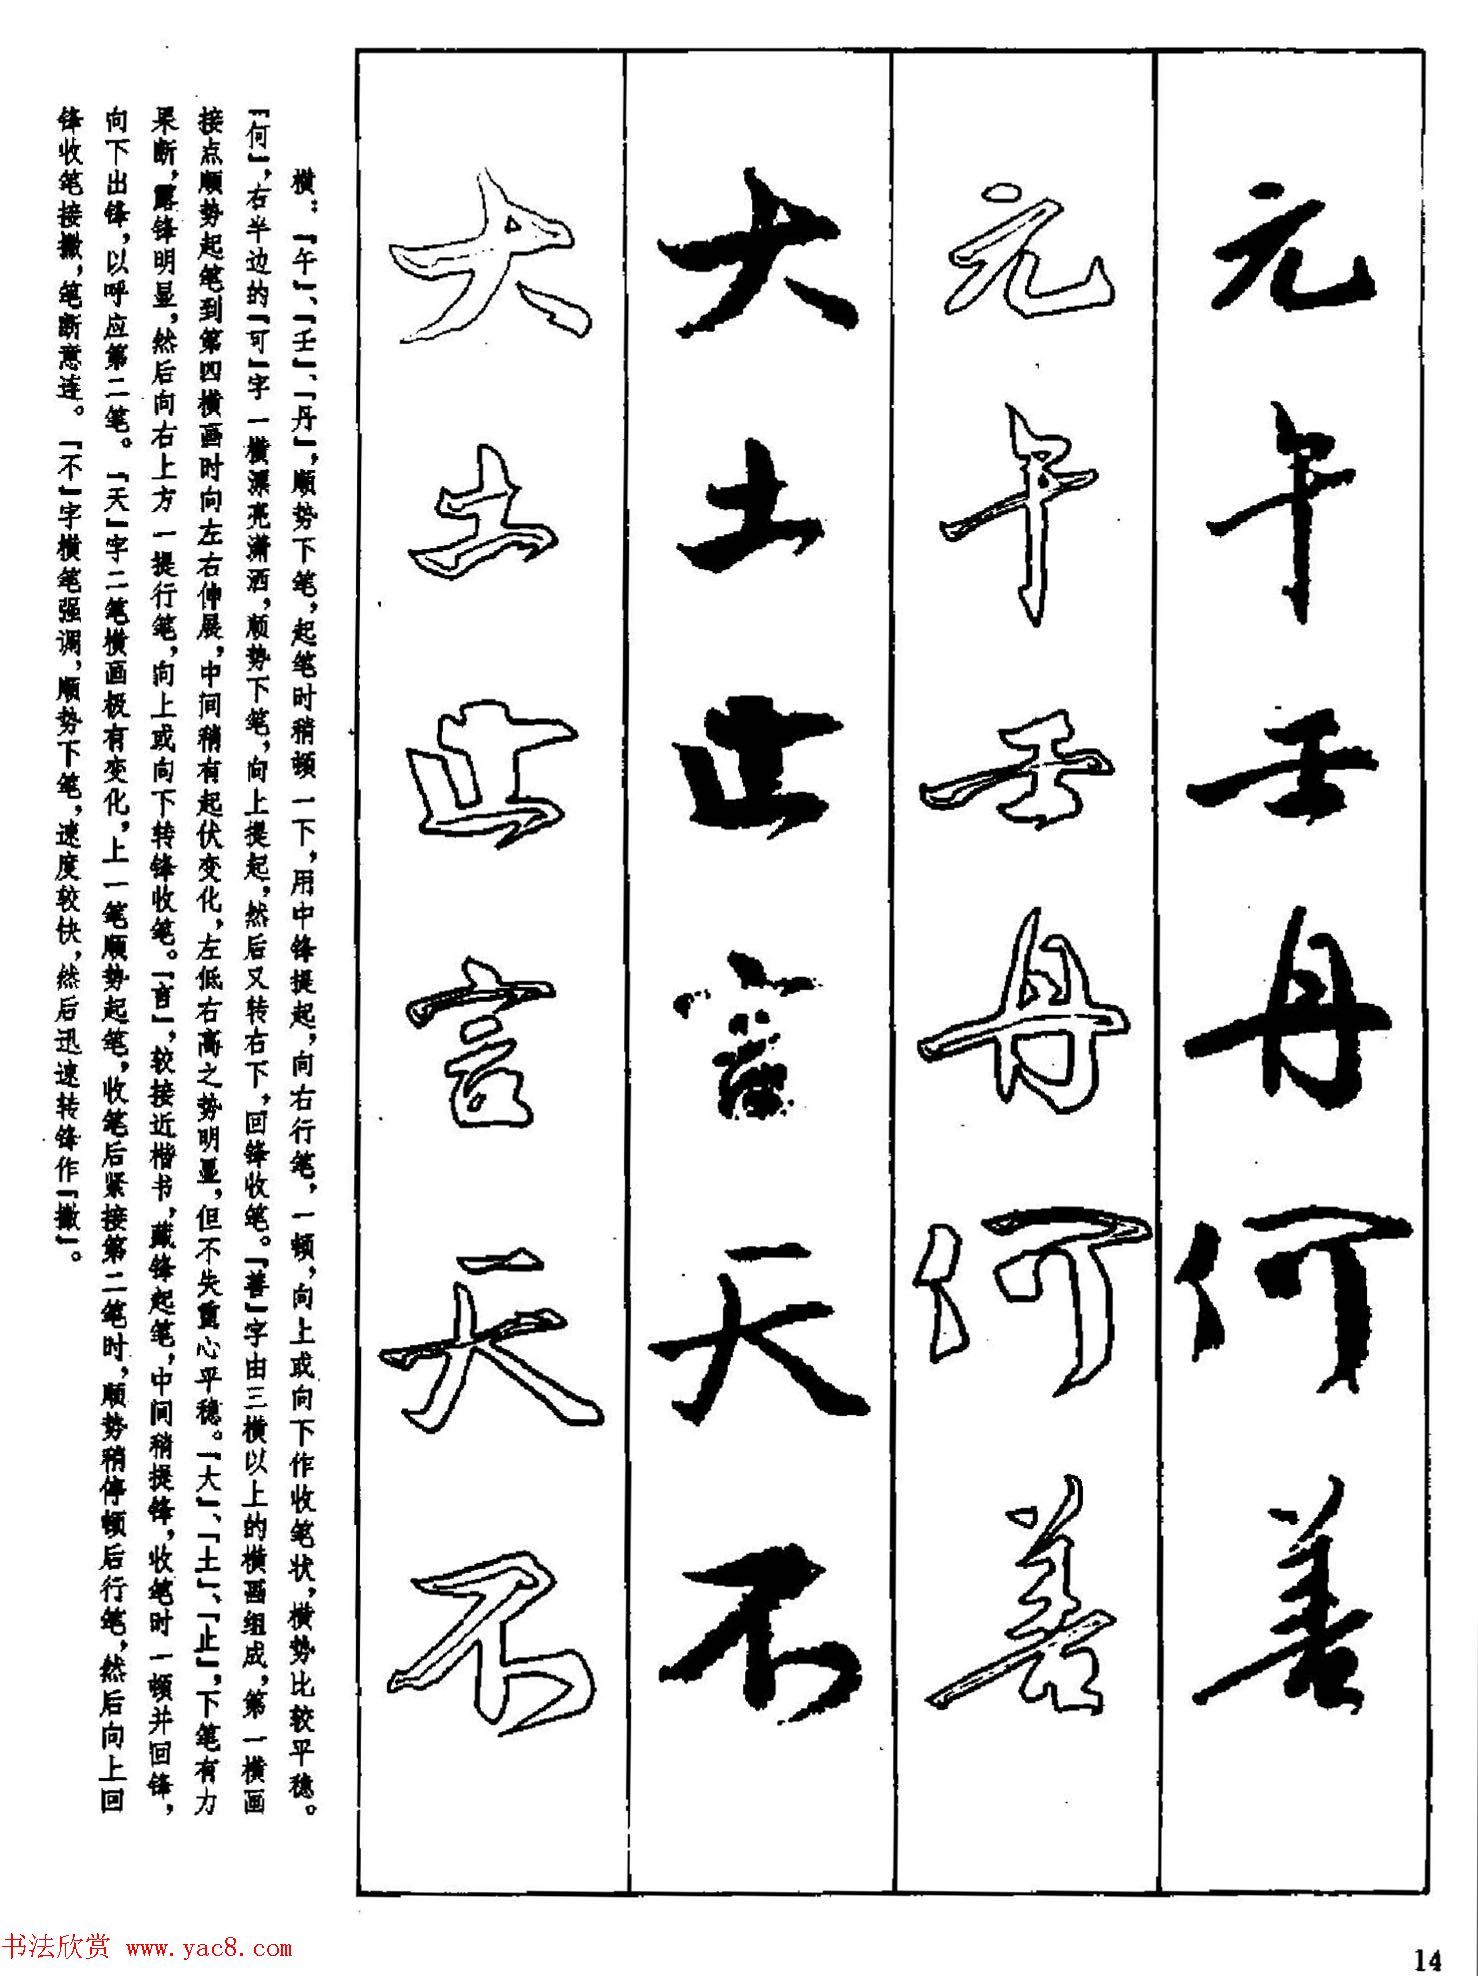 元午壬丹何善
元午壬丹何善
大土止言天不
大土止言天不
横：「午」、「壬」、「丹」，顺势下笔，起笔时稍顿一下，用中锋提起，向右行笔，一顿，向上或向下作收笔状，横势比较平稳。
「何」，右半边的「可」字一横漂亮潇洒，顺势下笔，向上提起，然后又转右下，回锋收笔。「善」字由三横以上的横画组成，第一横画
接点顺势起笔到第四横画时向左右伸展，中间稍有起伏变化，左低右高之势明显，但不失重心平稳。「大」、「土」、「止」，下笔有力
果断，露锋明显，然后向右上方一提行笔，向上或向下转锋收笔。「言」，较接近楷书，藏锋起笔，中间稍提锋，收笔时一顿并回锋，
向下出锋，以呼应第二笔。「天」字二笔横画极有变化，上一笔顺势起笔，收笔后紧接第二笔时，顺势稍停顿后行笔，然后向上回
锋收笔接撇，笔断意连。「不」字横笔强调，顺势下笔，速度较快，然后迅速转锋作「撇」。
书法欣赏 www.yac8.com
14